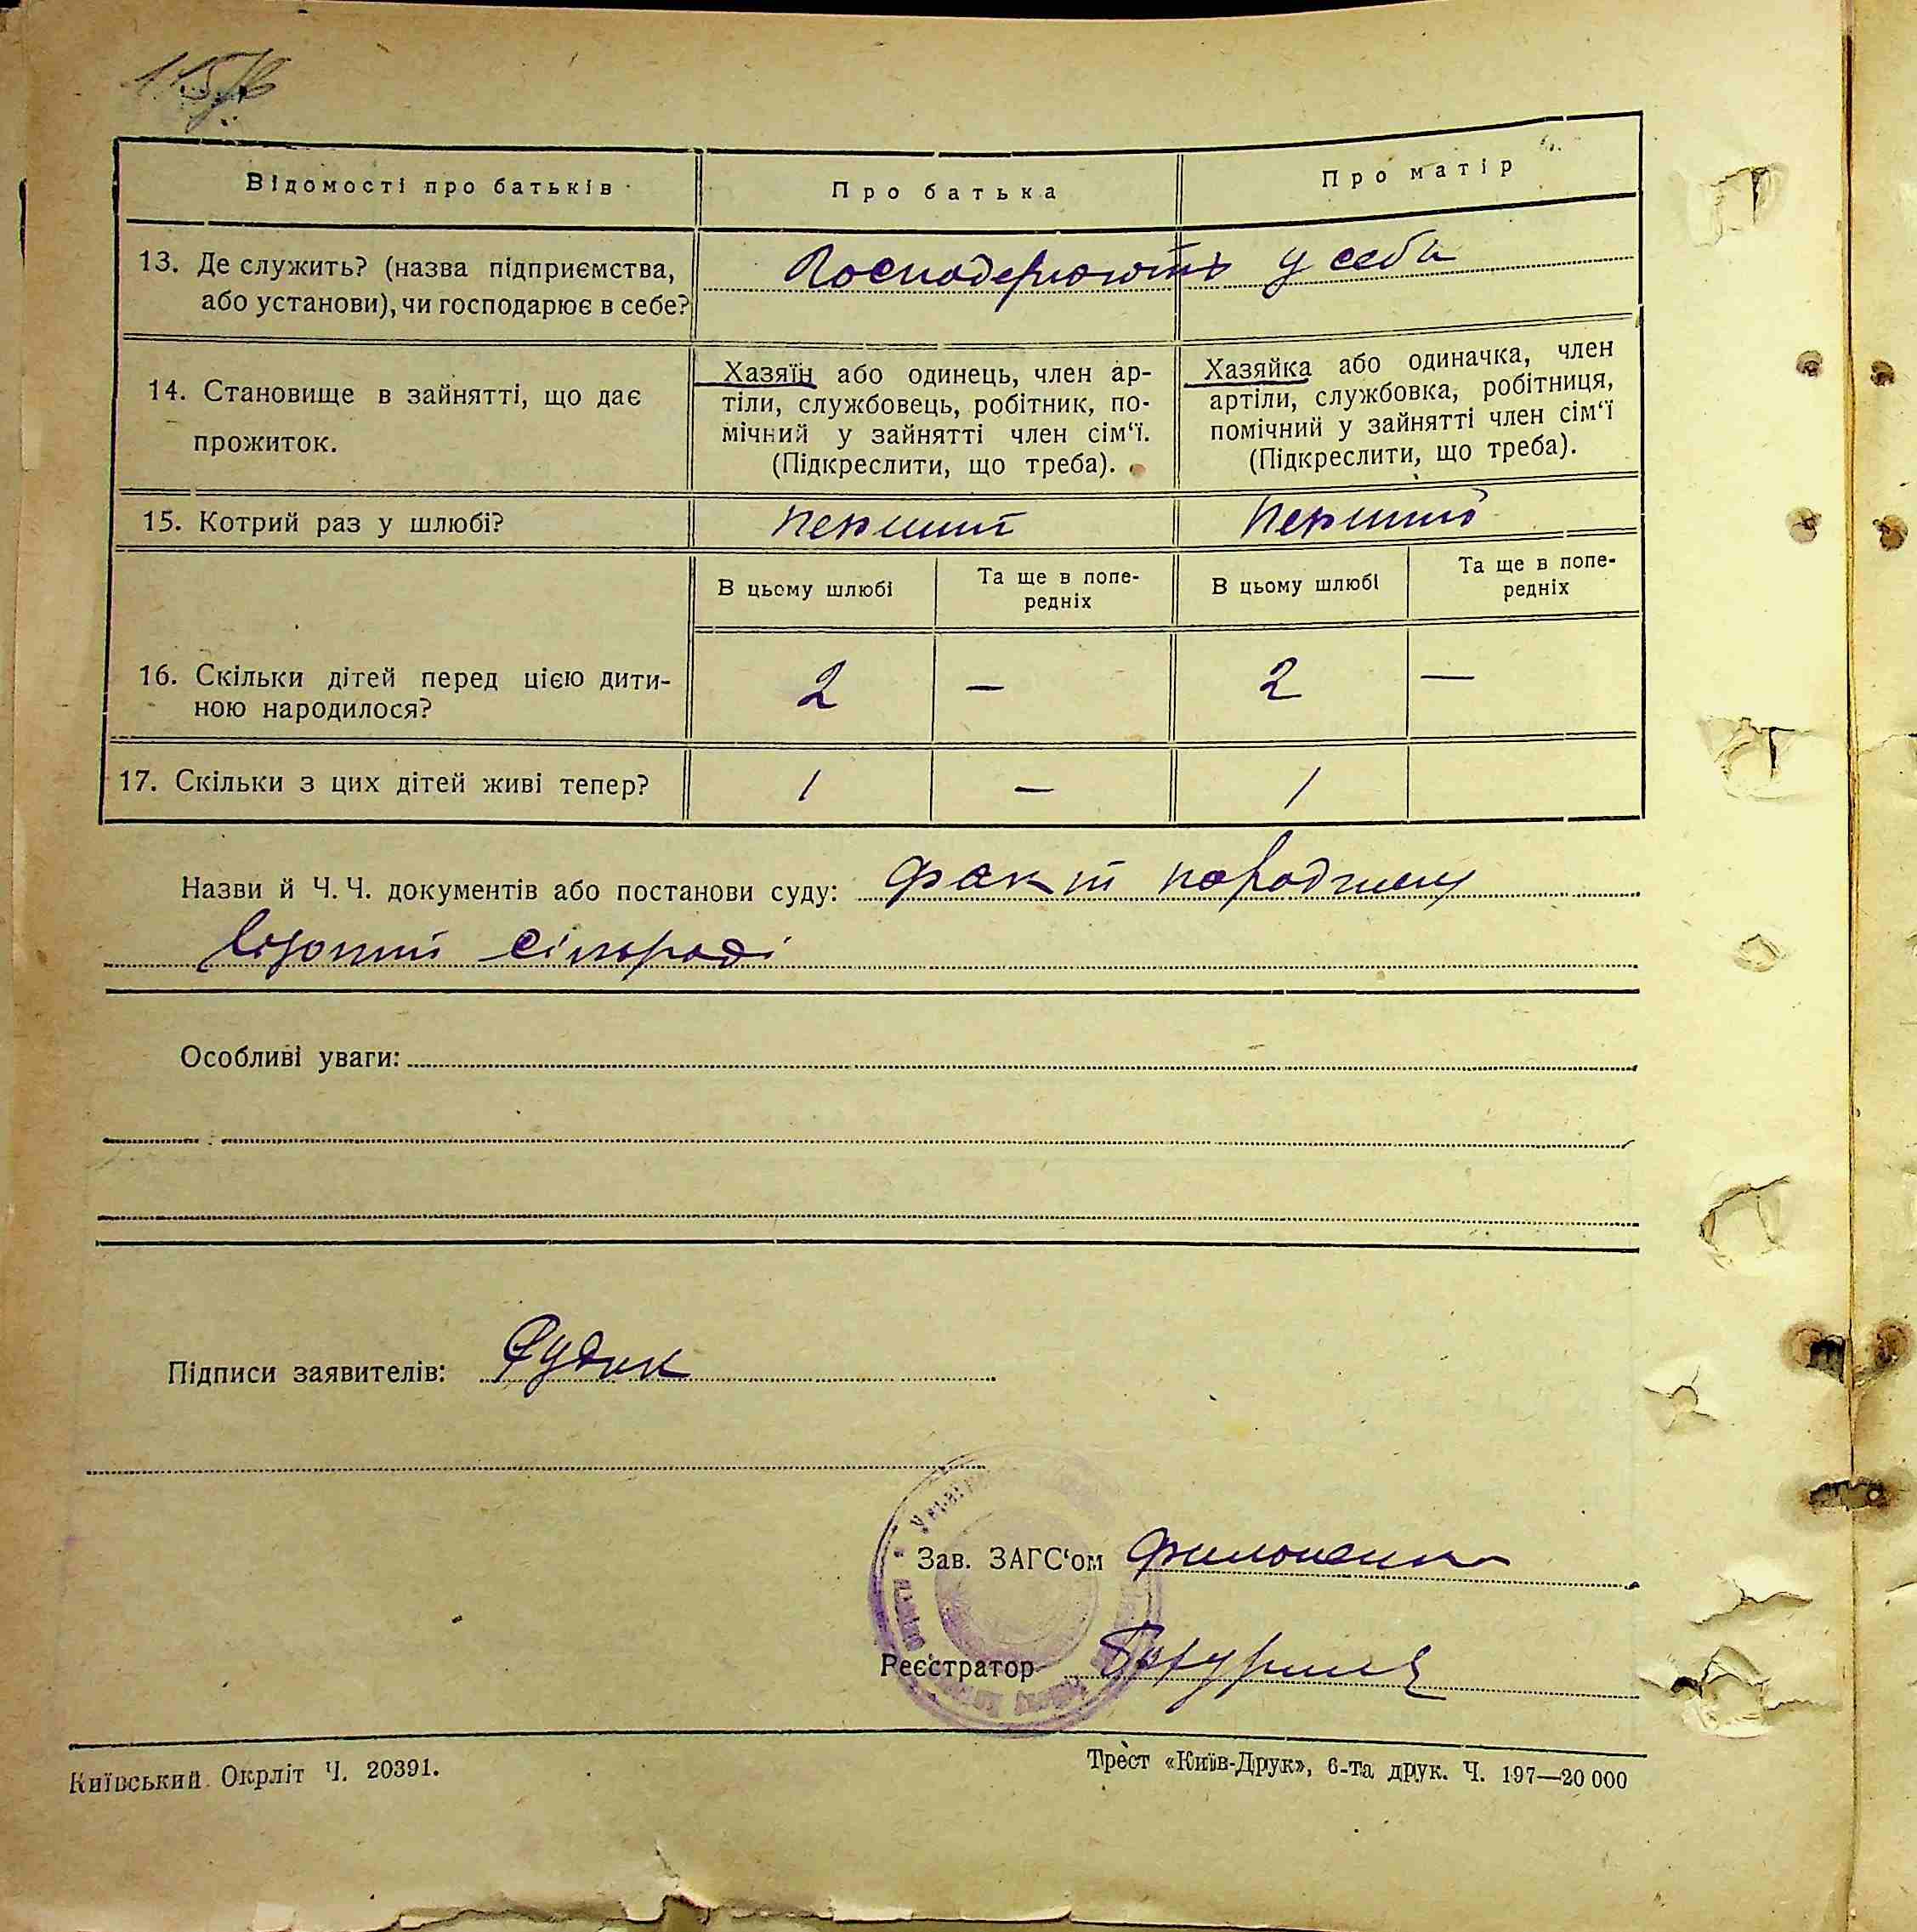 Відомості про батьків
Про батька
Про матір
13. Де служить? (назва підприємства,
або установи), чи господарює в себе?
Господерюють у себе
14. Становище в зайнятті, що дає
прожиток.
Хазяїн або одинець, член ар-
тіли, службовець, робітник, по-
мічний у зайнятті член сім‘ї.
(Підкреслити, що треба).
Хазяйка або одиначка, член
артіли, службовка, робітниця,
помічний у зайнятті член сім‘ї
(Підкреслити, що треба).
15. Котрий раз у шлюбі?
перший
перший
В цьому шлюбі
Та ще в попе-
редніх
В цьому шлюбі
Та ще в попе-
редніх
16. Скільки дітей перед цією дити-
ною народилося?
2 — 2 —
17. Скільки з цих дітей живі тепер?
1 — 1
Назви й Ч. Ч. документів або постанови суду: факт
сільраді
Особливі уваги:
Підписи заявителів: Рудик
Зав. ЗАГС‘ом
Реєстратор
Київський Окрліт Ч. 20391.
Трест «Київ-Друк», 6-та друк. Ч. 197—20 000